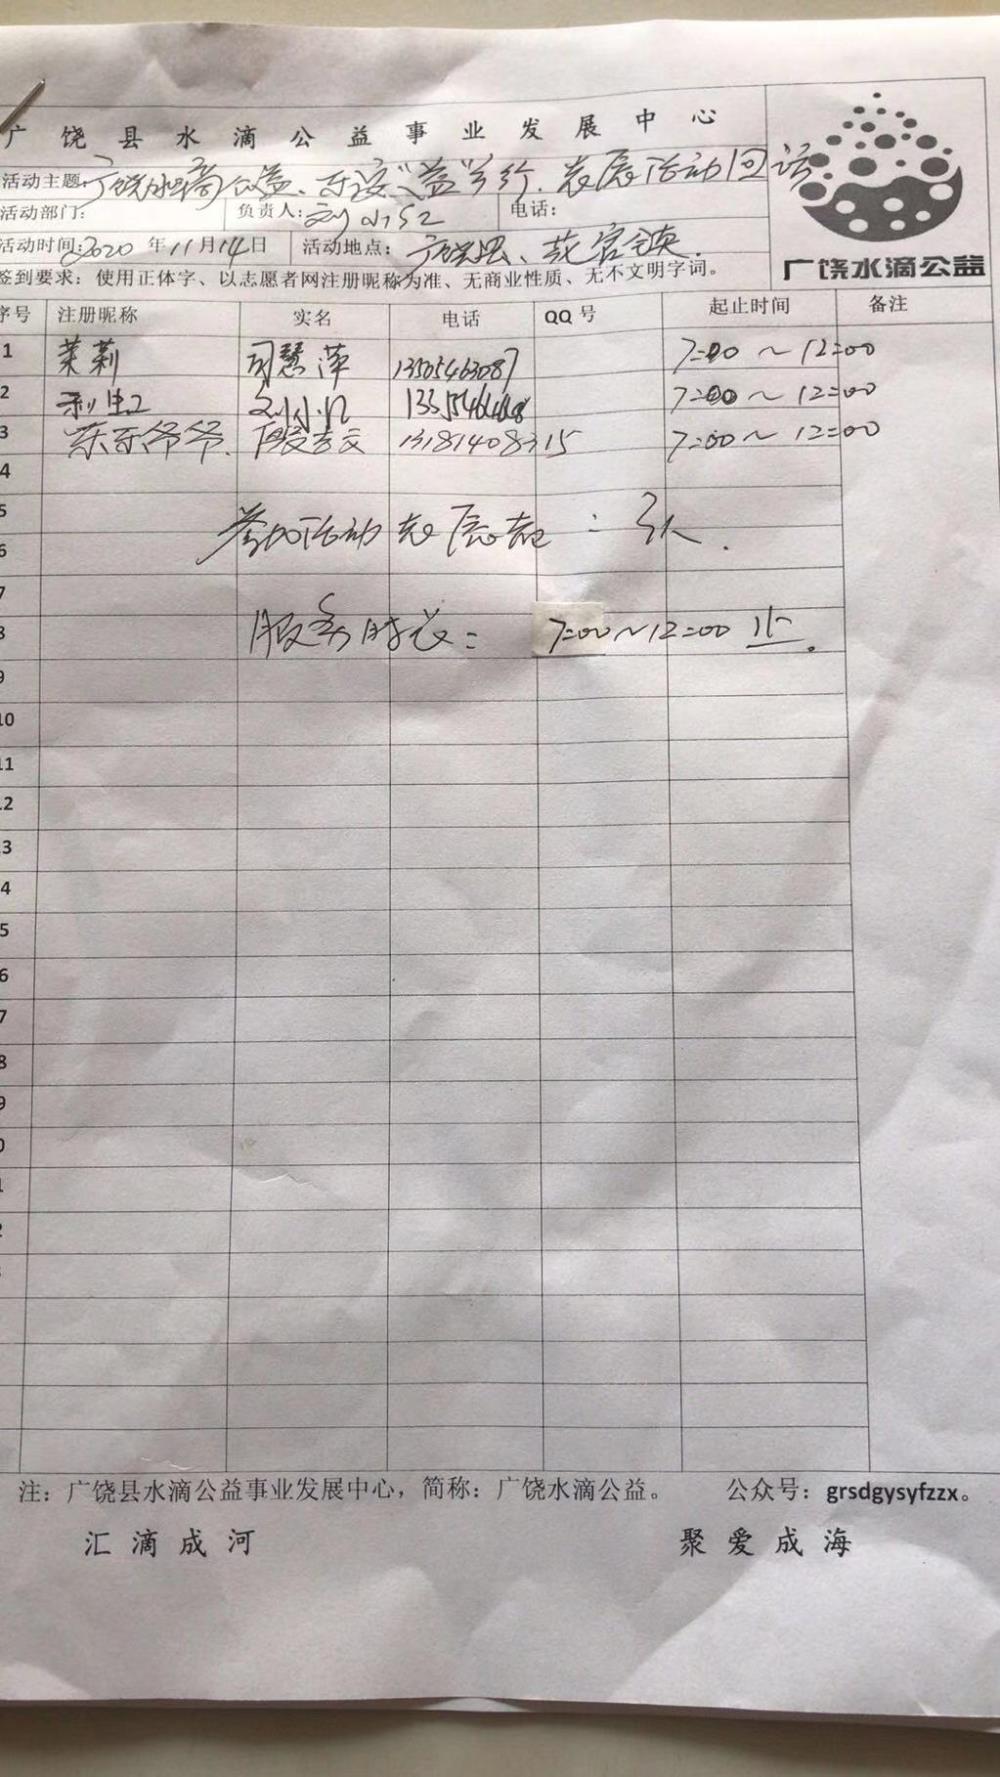 广饶县水滴公益事业发展中心
活动主题:广饶水滴公益、 "益"行、 活动回访
活动部门: 负责人:刘小红 电话:
活动时间:2020年11月14日 活动地点:广饶县、花官镇
签到要求:使用正体字、以志愿者网注册昵称为准、无商业性质、无不文明字词。
广饶水滴公益
序号 注册昵称 实名 电话 QQ号 起止时间 备注
1 茉莉 慧萍 13505463087 7:00～12:00
2 刘小红 7:00～12:00
3 东东爷爷 13181408315 7:00～12:00
4
5
参加活动 : 3人.
6
7
服务时长: 7:00～12:00止.
8
9
10
11
12
13
14
15
16
17
18
19
注:广饶县水滴公益事业发展中心,简称:广饶水滴公益。 公众号:grsdgysyfzzx。
汇滴成河 聚爱成海